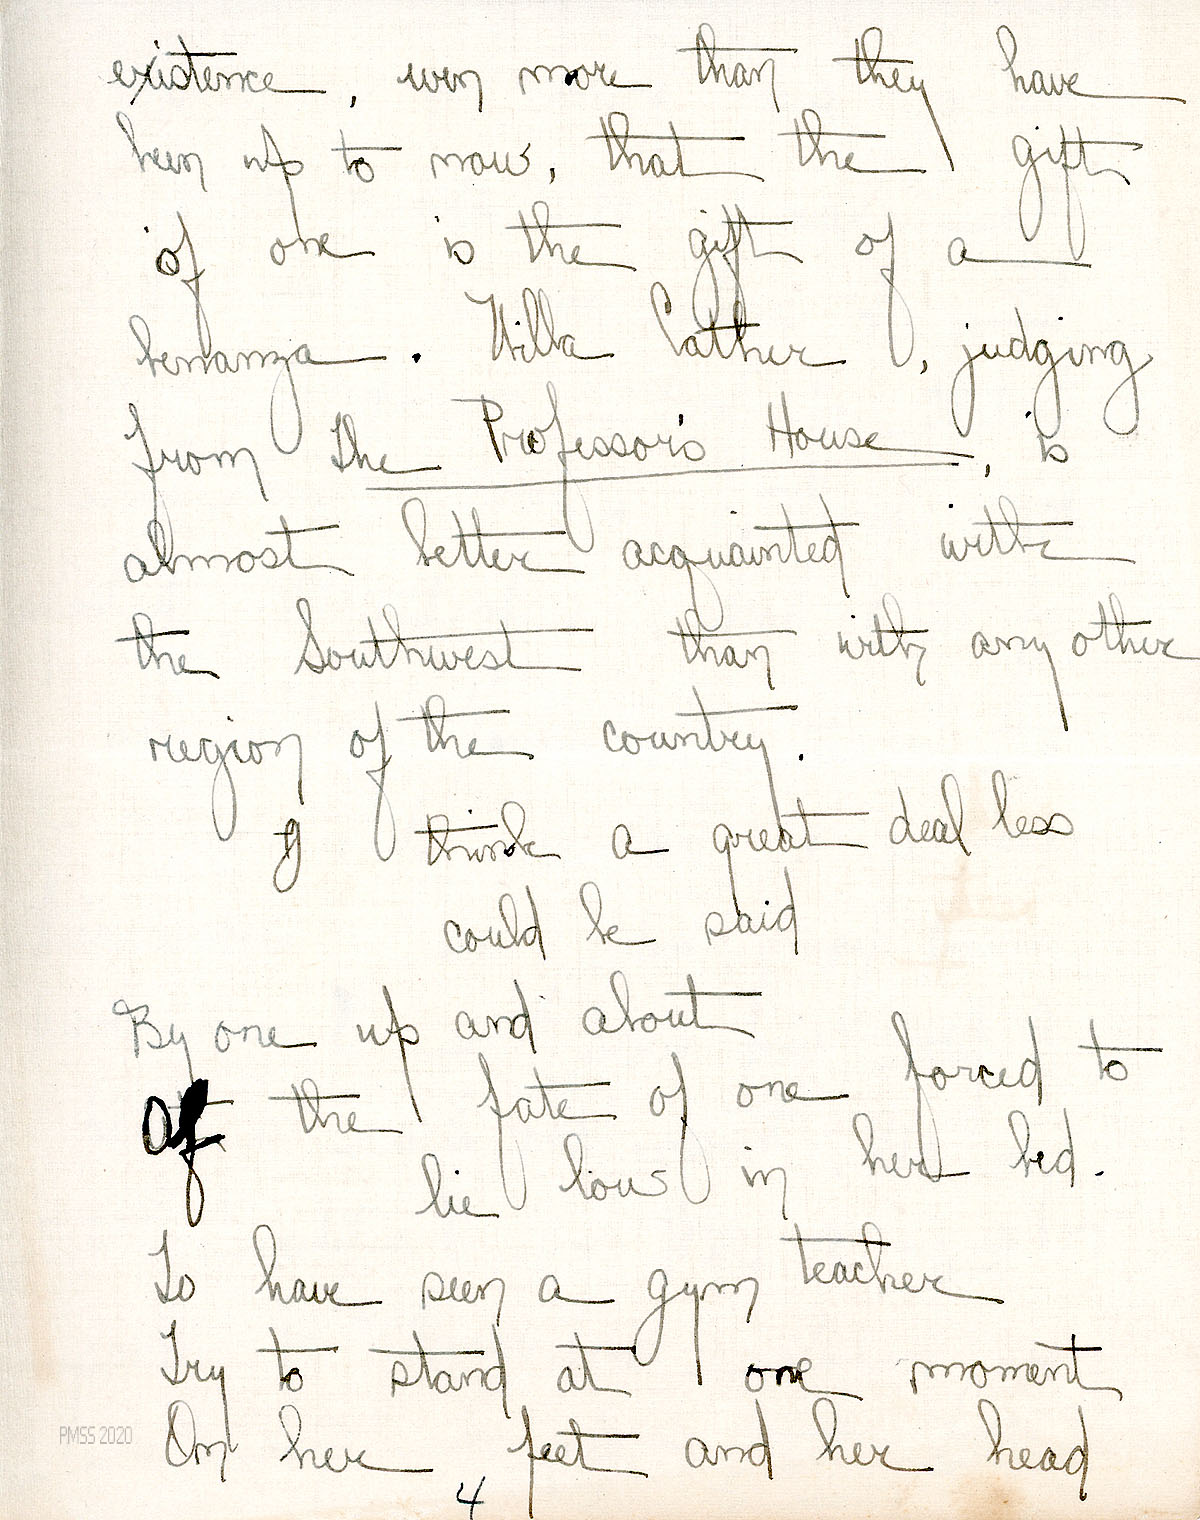 existence, even more than they have
been up to now, that the gift
of one is the gift of a
bonanza. Willa Cather, judging
from The Professor's House, is
almost better acquainted with
the Southwest than with any other
region of the country.
I think a great deal less
could be said
By one up and about
Of the fate of one forced to
lie low in her bed.
To have seen a gym teacher
Try to stand at one moment
On her feet and her head
4
PMSS 2020